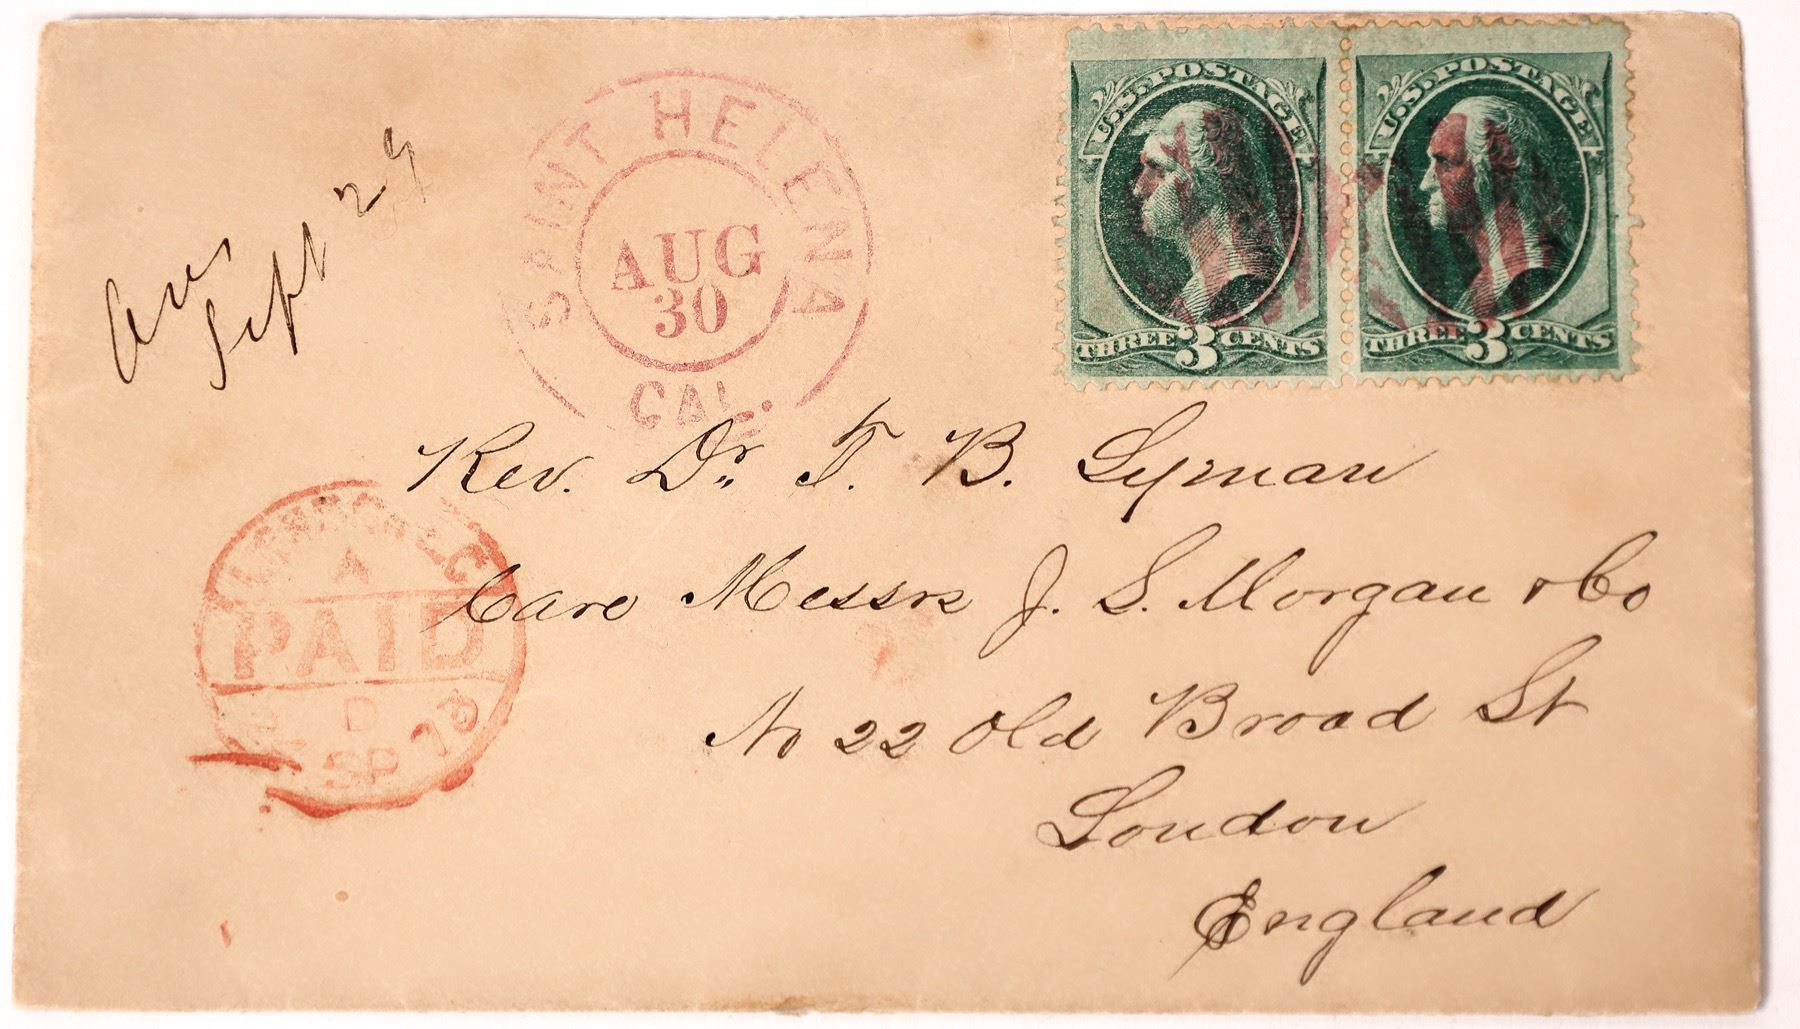 SAINT HELENA
AUG
30
CAL.
U.S. POSTAGE
THREE 3 CENTS
U.S. POSTAGE
THREE 3 CENTS
Ans
Sept 29
Rev. Dr. T. B. Lyman
Care Messrs J. S. Morgan & Co
No 22 Old Broad St
London
England
A
PAID
D
SP 73